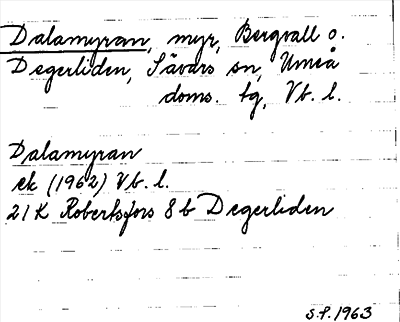 Dalamyran, myr, Bergvall o.
Degerliden, Sävars sn, Umeå
doms. tg, Vb. l.
Dalamyran
ek (1962) Vb. l.
21 K Robertsfors 8 b Degerliden
S.P. 1963